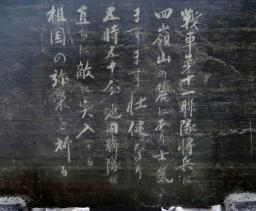 戰車第十一聯隊将兵は
四嶺山の麓にあり士気
ますます壮健なり
五時五十分池田聯隊は
直ちに敵に突入する
祖国の弥栄を祈る